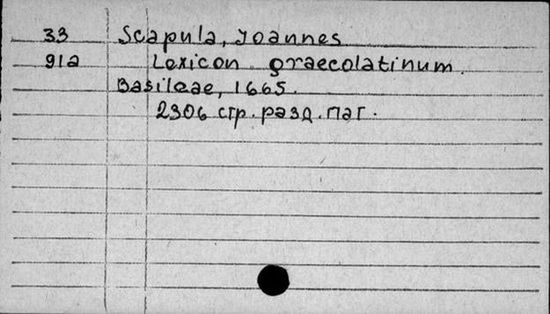 33 Scapula, Joannes
91a Lexicon graecolatinum.
Basileae, 1665.
2306 стр. разд. паг.